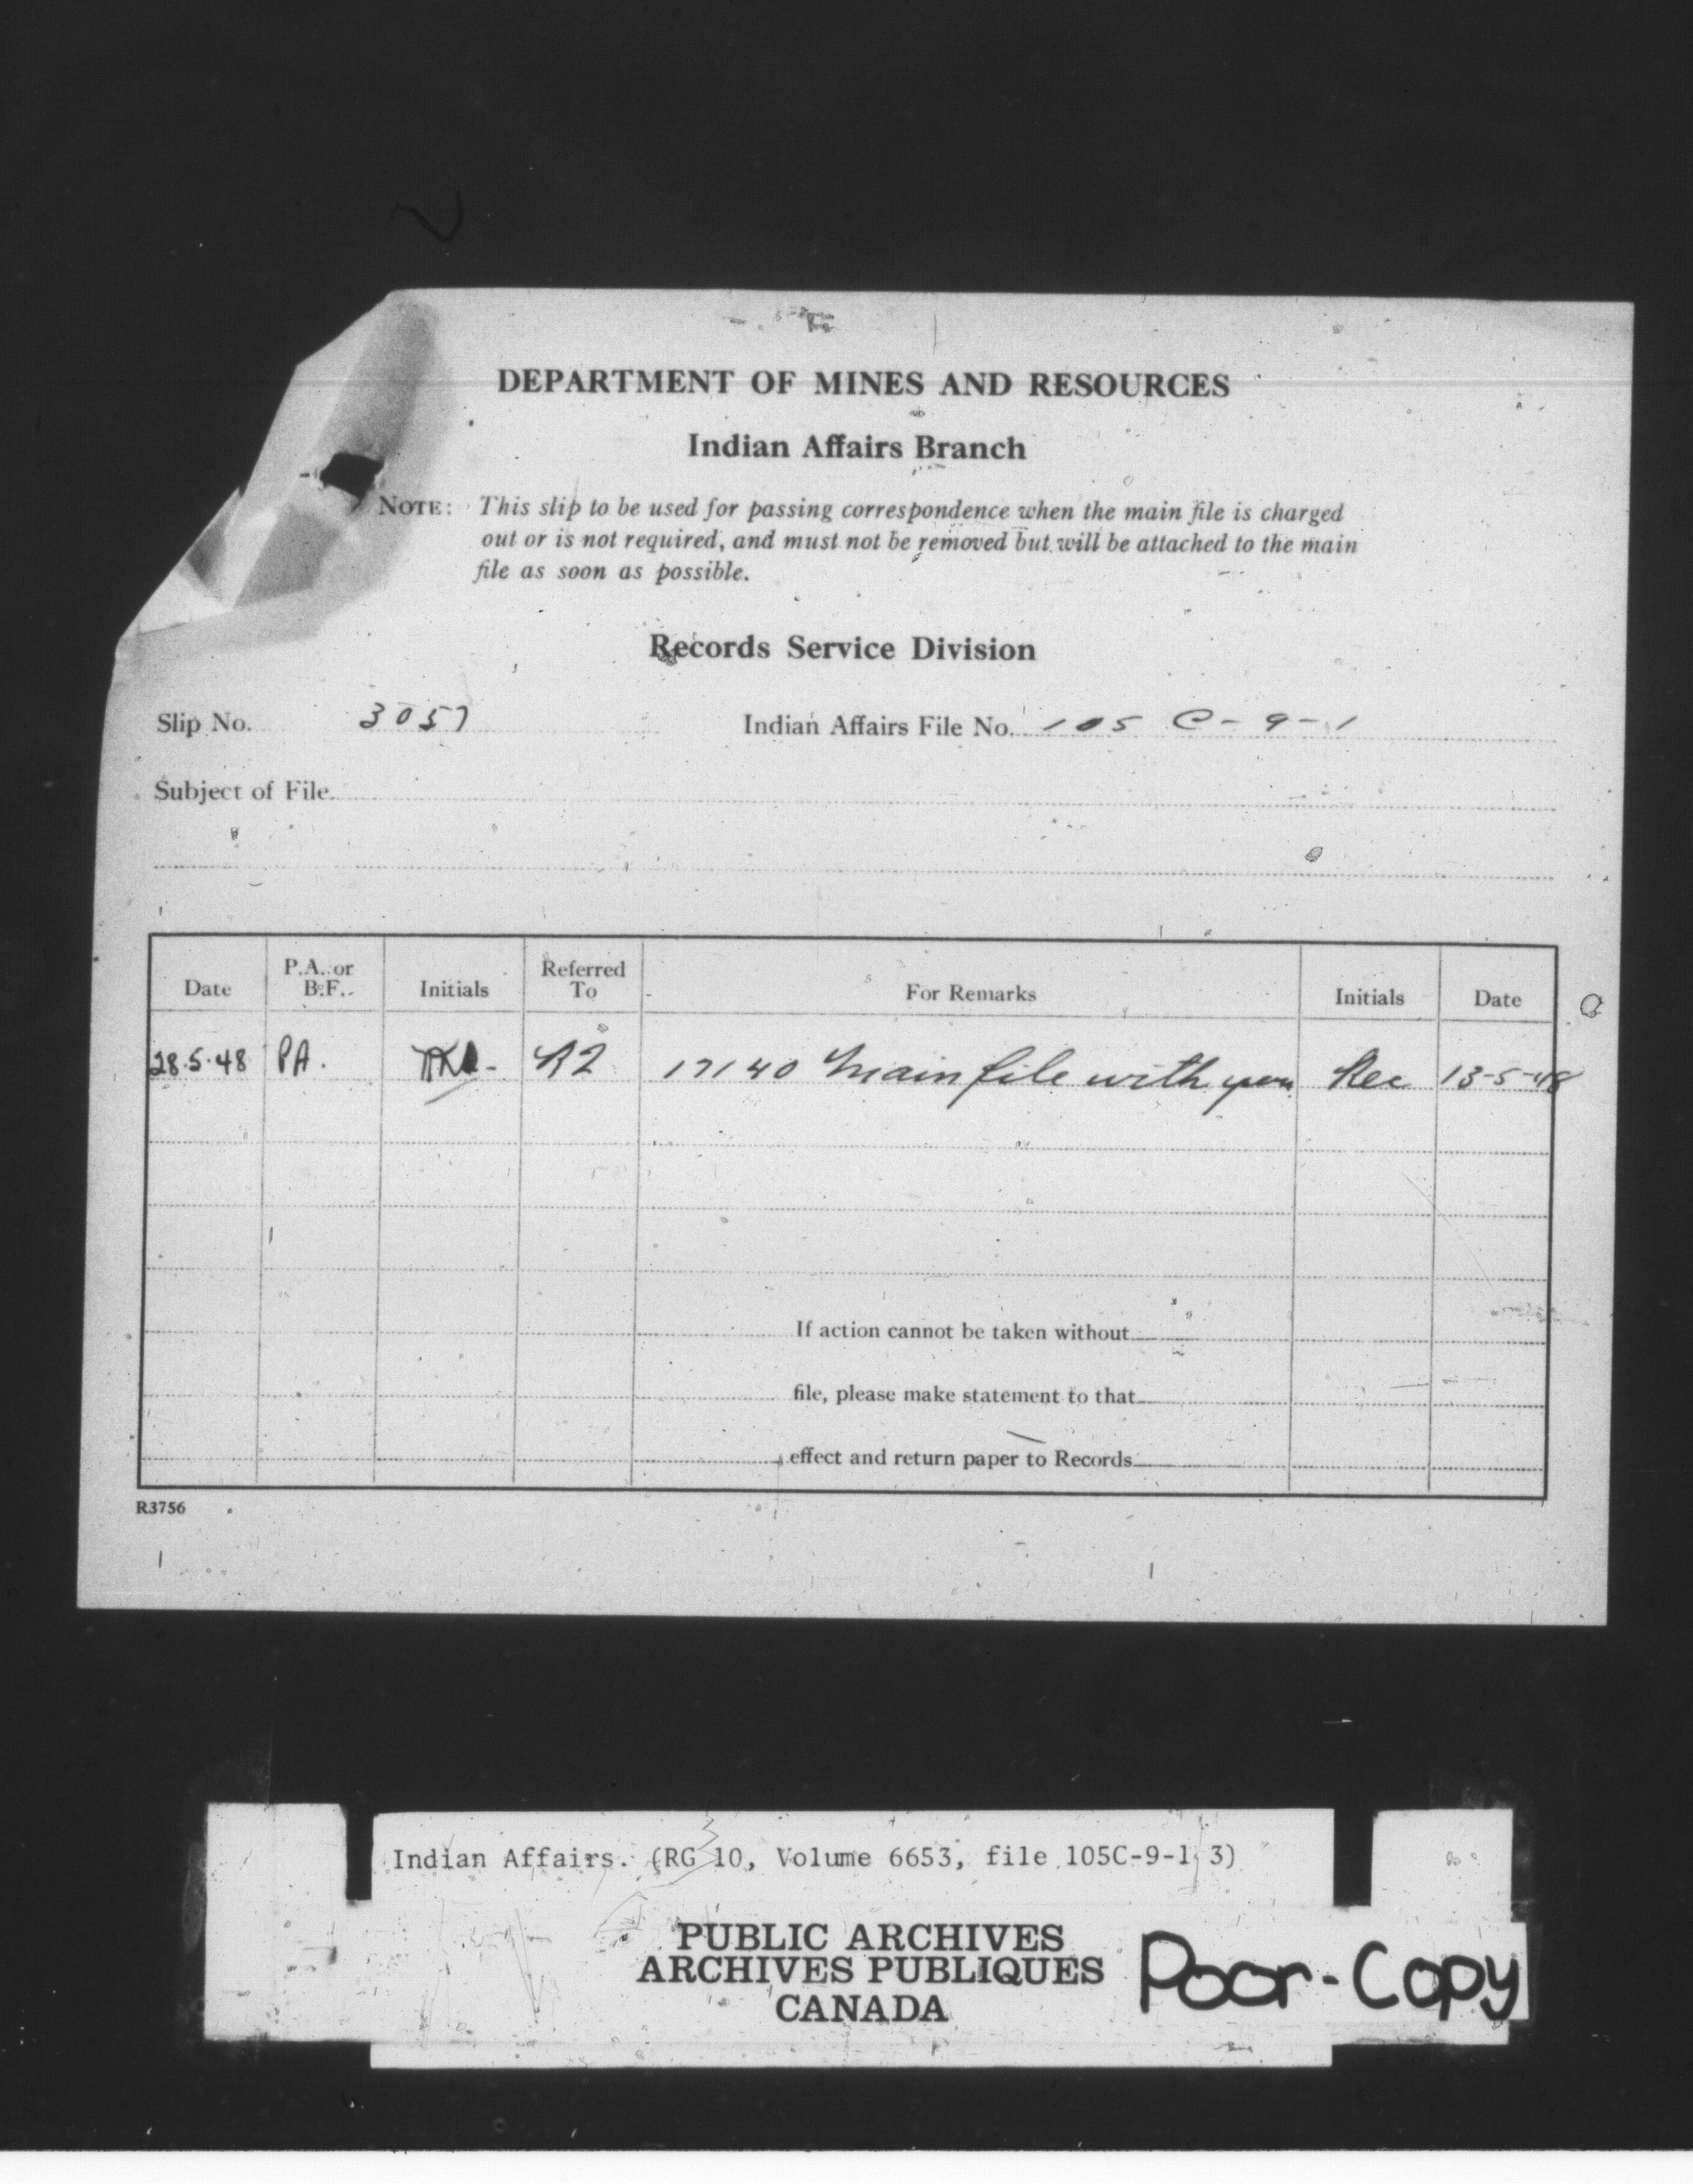 DEPARTMENT OF MINES AND RESOURCES
Indian Affairs Branch
NOTE: This slip to be used for passing correspondence when the main file is charged
out or is not required, and must not be removed but will be attached to the main
file as soon as possible.
Records Service Division
Slip No. 3057 Indian Affairs File No. 105 C-9-1
Subject of File
Date P.A. or B.F. Initials Referred To For Remarks Initials Date
28.5.48 PA. R2 17140 Main file with you Rec 13-5-48
If action cannot be taken without
file, please make statement to that
effect and return paper to Records
R3756
Indian Affairs. (RG 10, Volume 6653, file 105C-9-1, 3)
PUBLIC ARCHIVES
ARCHIVES PUBLIQUES
CANADA
Poor-Copy